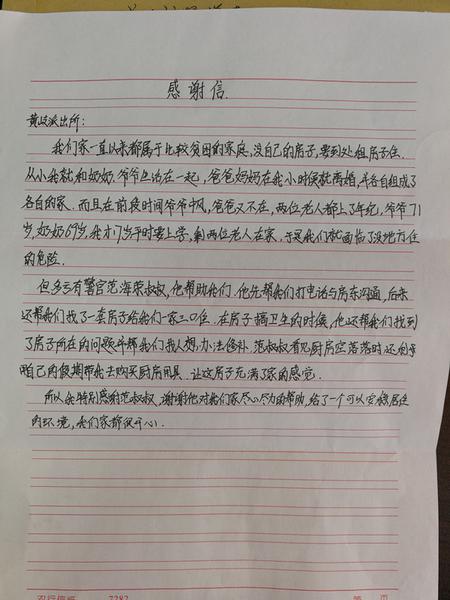 感谢信
黄歧派出所:
我们家一直以来都属于比较贫困的家庭,没自己的房子,要到处租房子住.
从小我就和奶奶.爷爷生活在一起,爸爸妈妈在我小时候就离婚,并各自组成了
各自的家.而且在前段时间爷爷中风,爸爸又不在,两位老人都上了年纪,爷爷71
岁,奶奶69岁,我才17岁平时要上学,剩两位老人在家.于是我们就面临了没地方住
的危险.
但多亏有警官范海荣叔叔,他帮助我们.他先帮我们打电话与房东沟通,后来
还帮我们找了一套房子给我们一家三口住.在房子搞卫生的时候,他还帮我们找到
了房子所在的问题并帮我们找人想办法修补.范叔叔看见厨房空落落时还利用
自己的假期带我去购买厨房用具.让这房子充满了家的感觉.
所以我特别感谢范叔叔,谢谢他对我们家尽心尽力的帮助,给了一个可以安稳居住
的环境,我们家都很开心.
农行信纸 7282 第 页